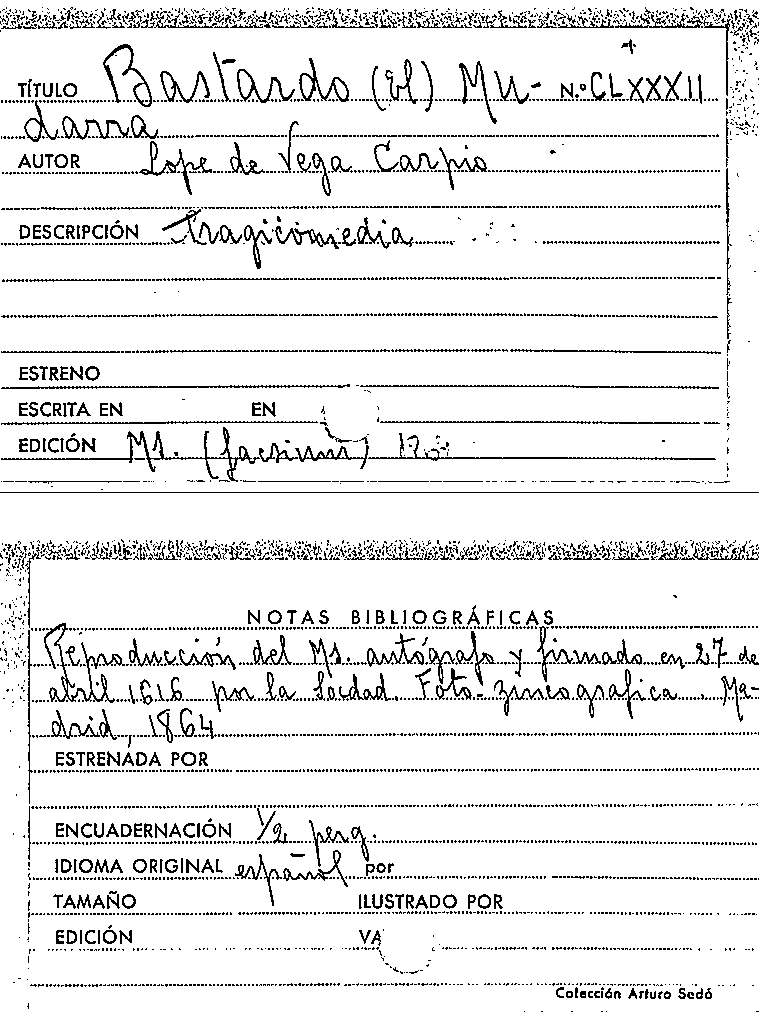 TÍTULO Bastardo (El) Mu- N.º CLXXXII
darra
AUTOR Lope de Vega Carpio
DESCRIPCIÓN tragicomedia
ESTRENO
ESCRITA EN EN
EDICIÓN Ms. (facsimil)
NOTAS BIBLIOGRÁFICAS
Reproducción del Ms. autógrafo y firmado en 27 de
abril 1616 por la Socdad. Foto-zincografica. Ma-
drid, 1864
ESTRENADA POR
ENCUADERNACIÓN 1/2 perg.
IDIOMA ORIGINAL español por
TAMAÑO ILUSTRADO POR
EDICIÓN VA
Colección Arturo Sedó